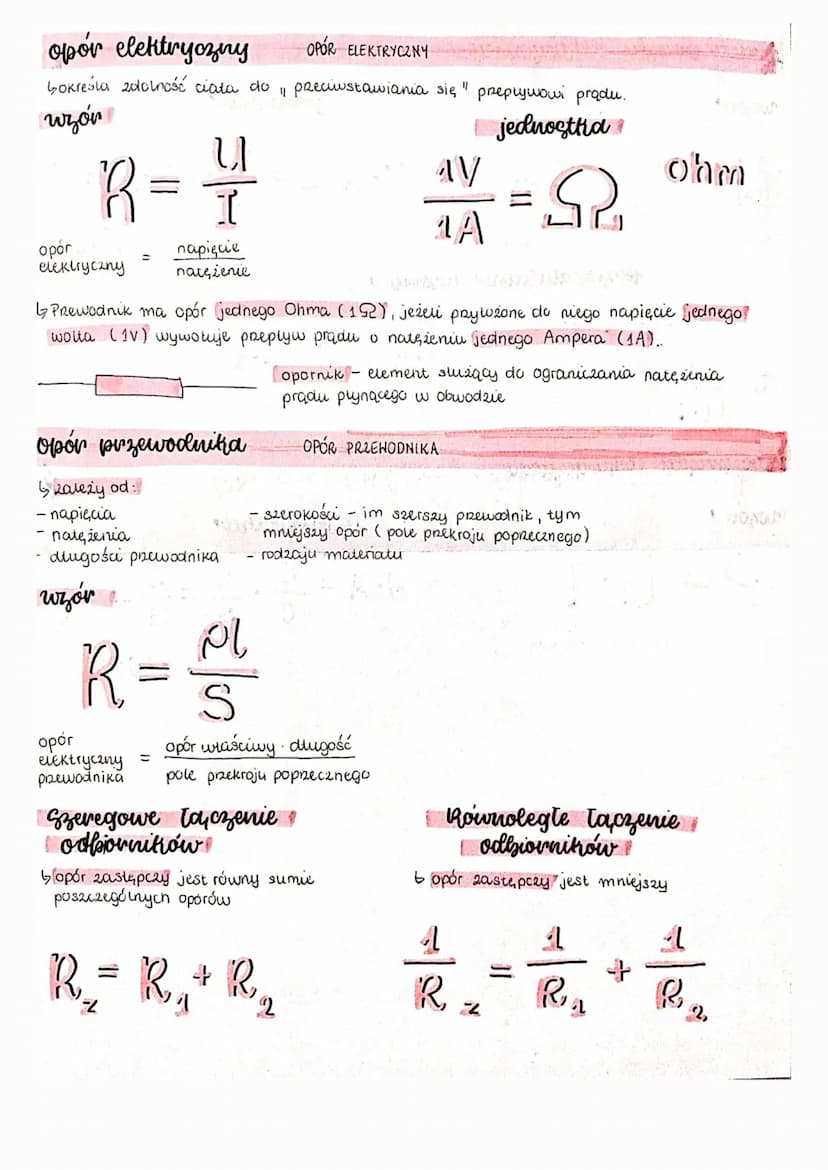 opór elektryczny OPÓR ELEKTRYCZNY
↳ określa zdolność ciała do „przeciwstawiania się" przepływowi prądu.
wzór
R = U / I
jednostka
1V / 1A = Ω ohm
opór elektryczny = napięcie / natężenie
↳ Przewodnik ma opór jednego Ohma (1Ω), jeżeli przyłożone do niego napięcie jednego
wolta (1V) wywołuje przepływ prądu o natężeniu jednego Ampera (1A).
opornik - element służący do ograniczania natężenia
prądu płynącego w obwodzie
opór przewodnika OPÓR PRZEWODNIKA
↳ zależy od:
- napięcia
- natężenia
- długości przewodnika
- szerokości - im szerszy przewodnik, tym
mniejszy opór (pole przekroju poprzecznego)
- rodzaju materiału
wzór
R = ρl / S
opór elektryczny przewodnika = opór właściwy · długość / pole przekroju poprzecznego
Szeregowe łączenie
odbiorników
↳ opór zastępczy jest równy sumie
poszczególnych oporów
R_z = R_1 + R_2
Równoległe łączenie
odbiorników
↳ opór zastępczy jest mniejszy
1 / R_z = 1 / R_1 + 1 / R_2